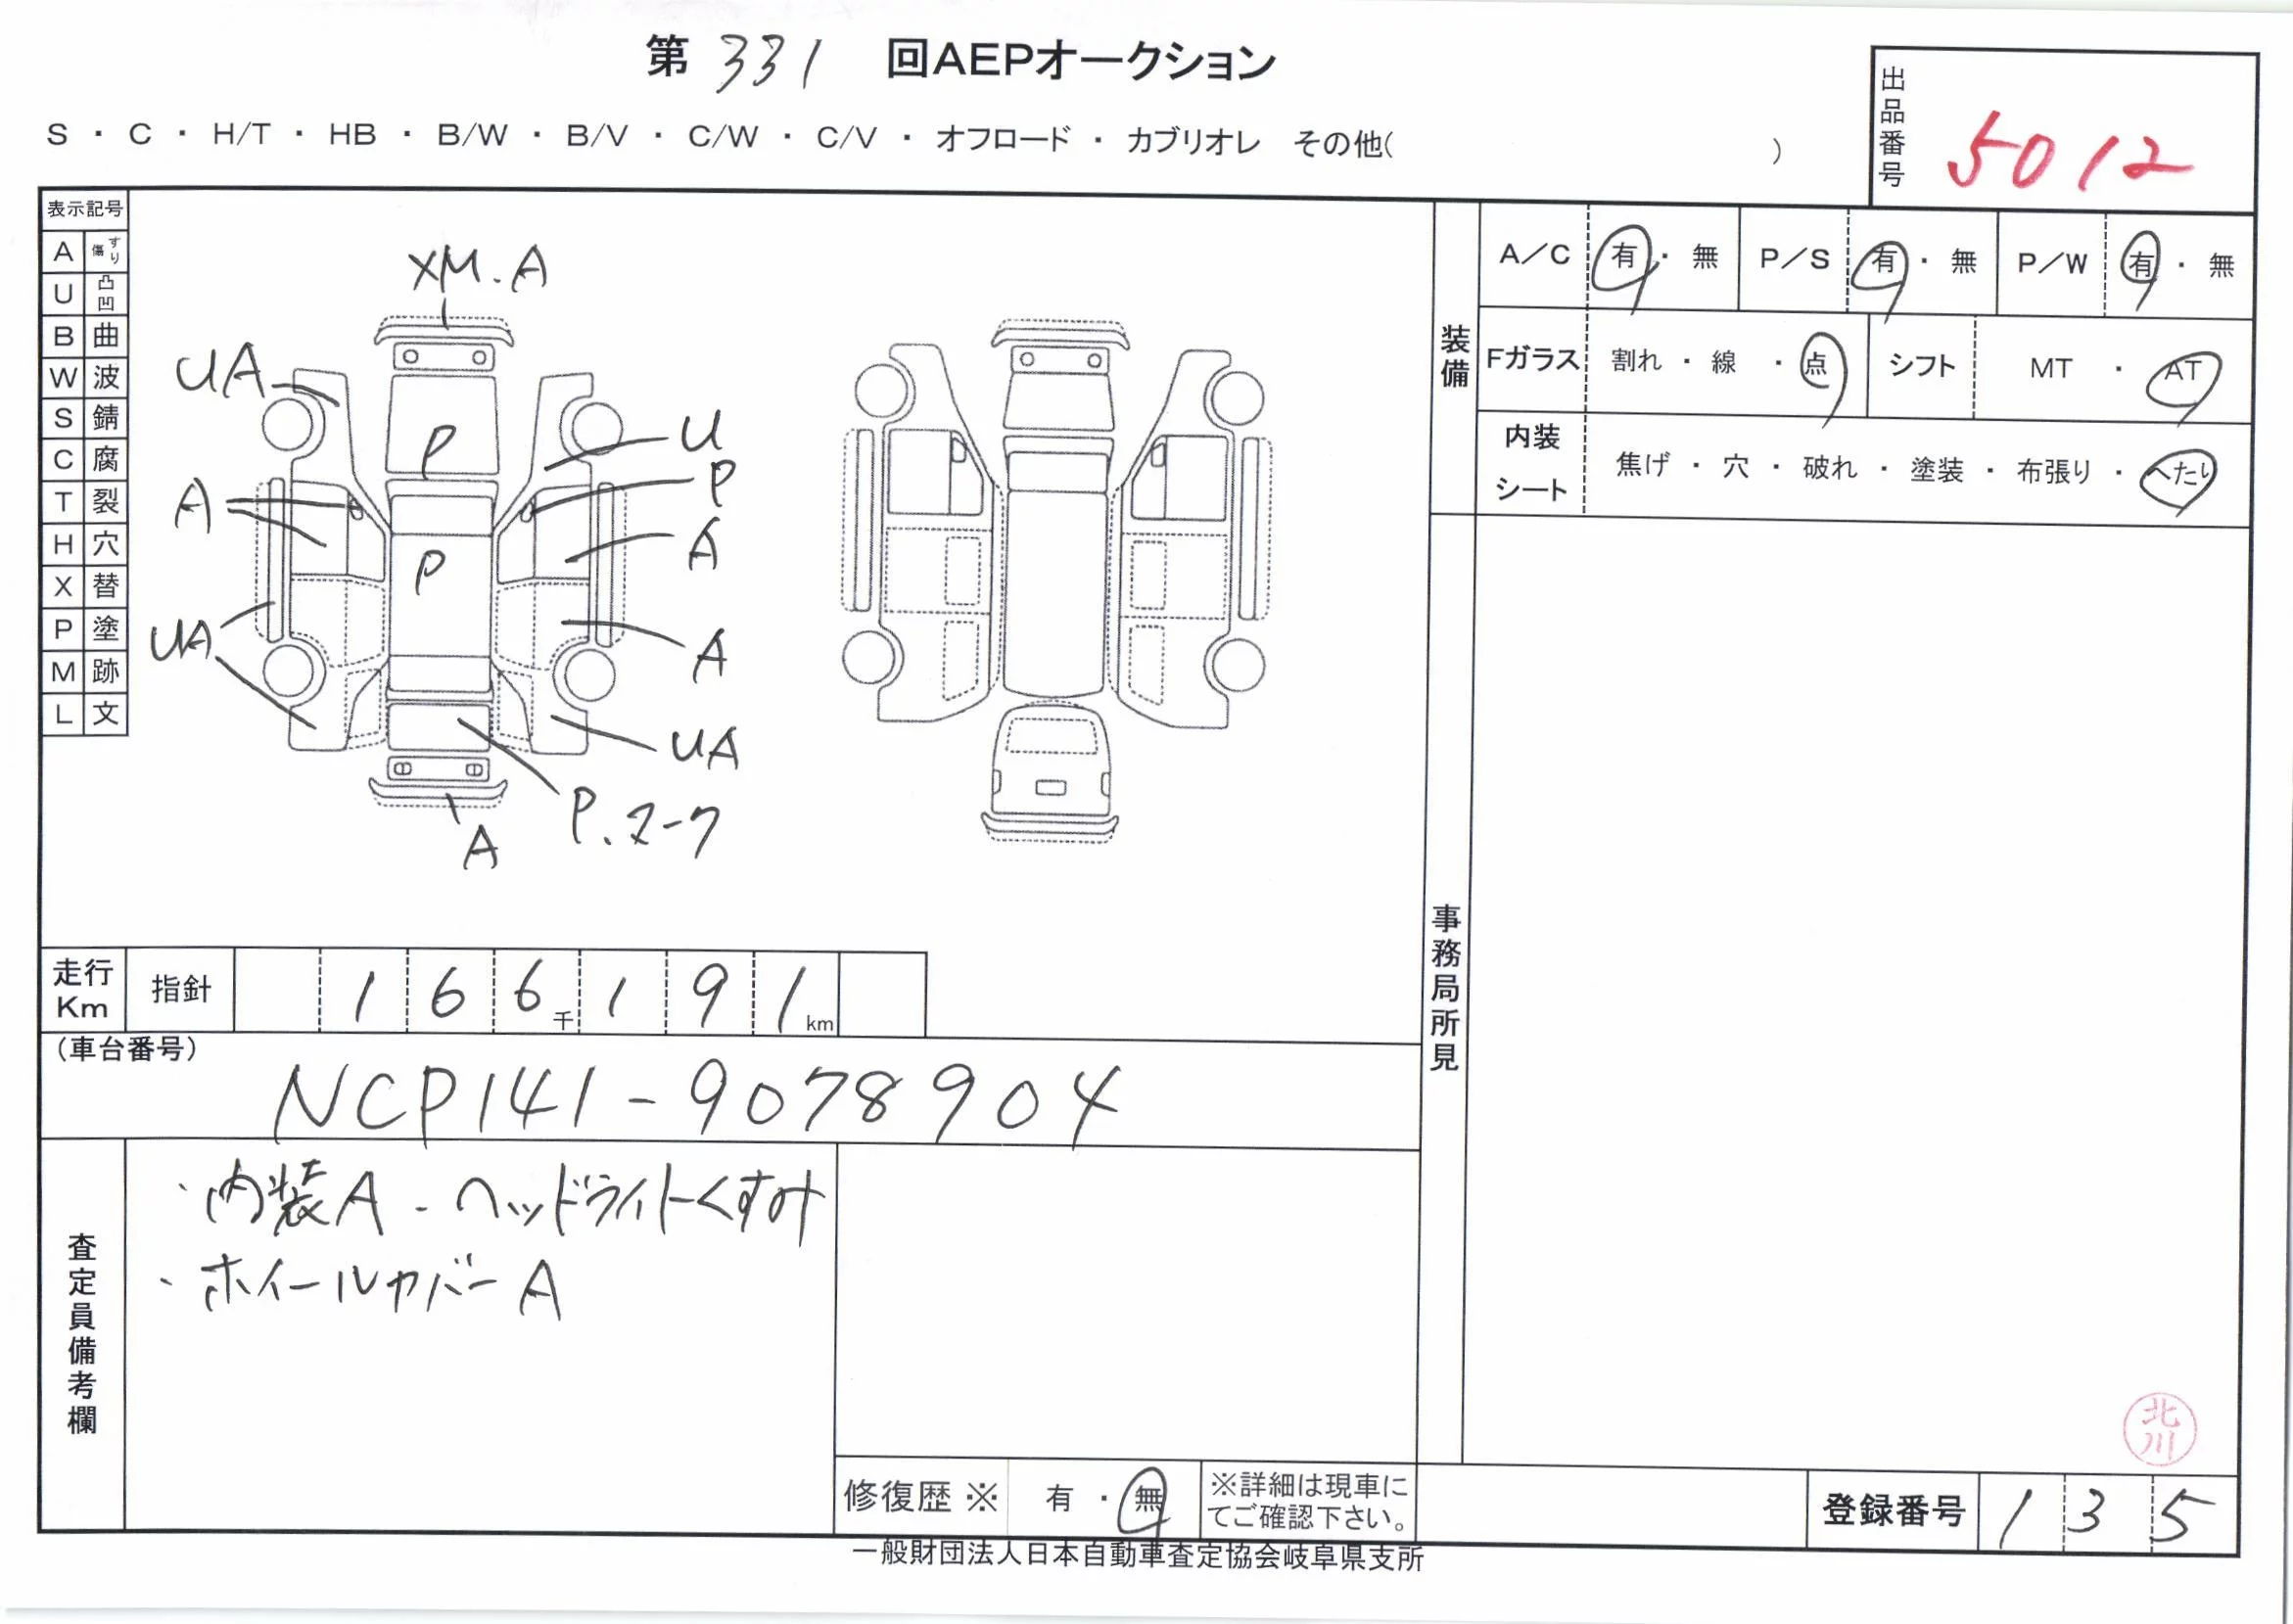 第 331 回AEPオークション
出品番号 5012
S ・ C ・ H/T ・ HB ・ B/W ・ B/V ・ C/W ・ C/V ・ オフロード ・ カブリオレ その他( )
表示記号
A すり傷
U 凸凹
B 曲
W 波
S 錆
C 腐
T 裂
H 穴
X 替
P 塗
M 跡
L 文
XM.A
UA
P
U
P
A
A
P
UA
A
UA
P.マーク
A
装備
A/C 有 ・ 無 P/S 有 ・ 無 P/W 有 ・ 無
Fガラス 割れ ・ 線 ・ 点 シフト MT ・ AT
内装シート 焦げ ・ 穴 ・ 破れ ・ 塗装 ・ 布張り ・ へたり
事務局所見
走行Km 指針 1 6 6千 1 9 1km
(車台番号)
NCP141-9078904
査定員備考欄
・内装A ・ヘッドライトくすみ
・ホイールカバーA
修復歴 ※ 有 ・ 無 ※詳細は現車に
てご確認下さい。
北川
登録番号 1 3 5
一般財団法人日本自動車査定協会岐阜県支所